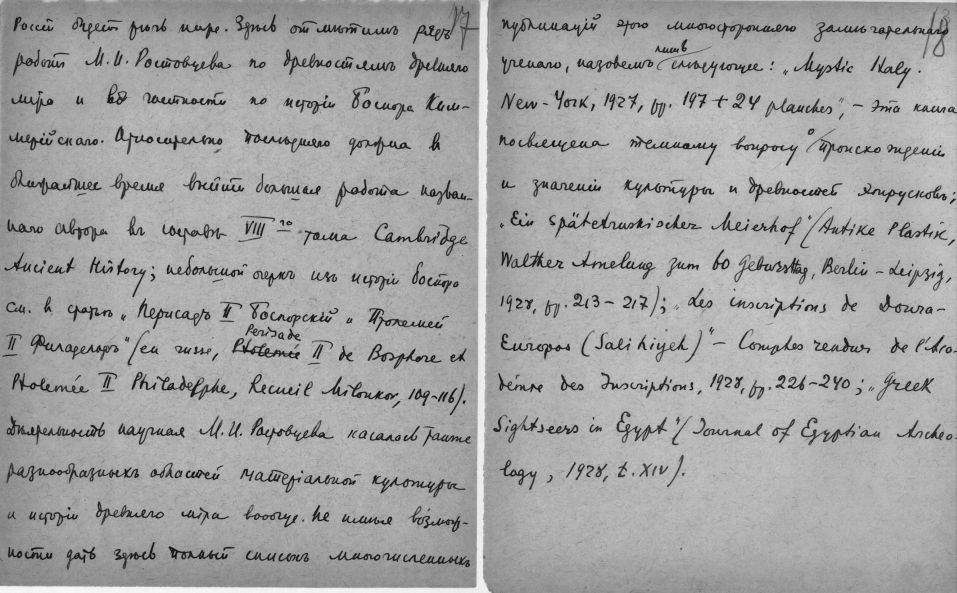 17
Россiи будетъ рѣчь ниже. Здѣсь отмѣтимъ рядъ
работъ М.И. Ростовцева по древностямъ древняго
мiра и въ частности по исторiи Боспора Ким-
мерiйскаго. Относительно послѣдняго должна въ
ближайшее время выйти большая работа назван-
наго автора въ составѣ VIII го тома Cambridge
Ancient History; небольшой очеркъ изъ исторiи Боспора
см. въ статьѣ „Перисадъ II Боспорскiй и Птолемей
II Филадельфъ" (en russe, Ptolemée Perisade II de Bosphore et
Ptolemée II Philadelphe, Recueil Milonkov, 109-116).
Дѣятельность научная М.И. Ростовцева касалась также
разнообразныхъ областей матерiальной культуры
и исторiи древняго мiра вообще. Не имѣя возмож-
ности дать здѣсь полный списокъ многочисленныхъ
18
публикацiй этого многосторонняго замѣчательнаго
ученаго, назовемъ лишь слѣдующее: „Mystic Italy.
New-York, 1927, pp. 197 + 24 planches", – эта книга
посвящена темному вопросу о происхожденiи
и значенiи культуры и древностей этрусковъ;
„Ein spätetruskischer Meierhof" (Antike Plastik,
Walther Amelung zum 60 Geburtstag, Berlin – Leipzig,
1928, pp. 213 – 217); „Les inscriptions de Doura-
Europos (Salihiyeh)" – Comptes rendus de l'Aca-
démie des Inscriptions, 1928, pp. 226-240; „Greek
Sightseers in Egypt" (Journal of Egyptian Archeo-
logy, 1928, t. XIV).